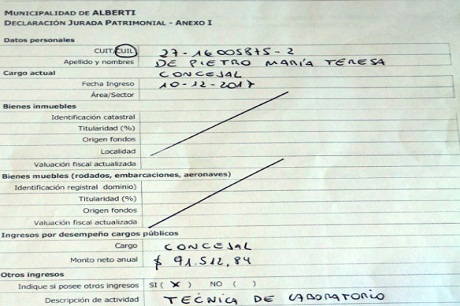 MUNICIPALIDAD DE ALBERTI
DECLARACIÓN JURADA PATRIMONIAL - ANEXO I
Datos personales
CUIT/CUIL 27-16005875-2
Apellido y nombres DE PIETRO MARÍA TERESA
Cargo actual CONCEJAL
Fecha Ingreso 10-12-2017
Área/Sector
Bienes inmuebles
Identificación catastral
Titularidad (%)
Origen fondos
Localidad
Valuación fiscal actualizada
Bienes muebles (rodados, embarcaciones, aeronaves)
Identificación registral dominio)
Titularidad (%)
Origen fondos
Valuación fiscal actualizada
Ingresos por desempeño cargos públicos
Cargo CONCEJAL
Monto neto anual $ 91.512,84
Otros ingresos
Indique si posee otros ingresos SI ( X ) NO ( )
Descripción de actividad TECNICA DE LABORATORIO